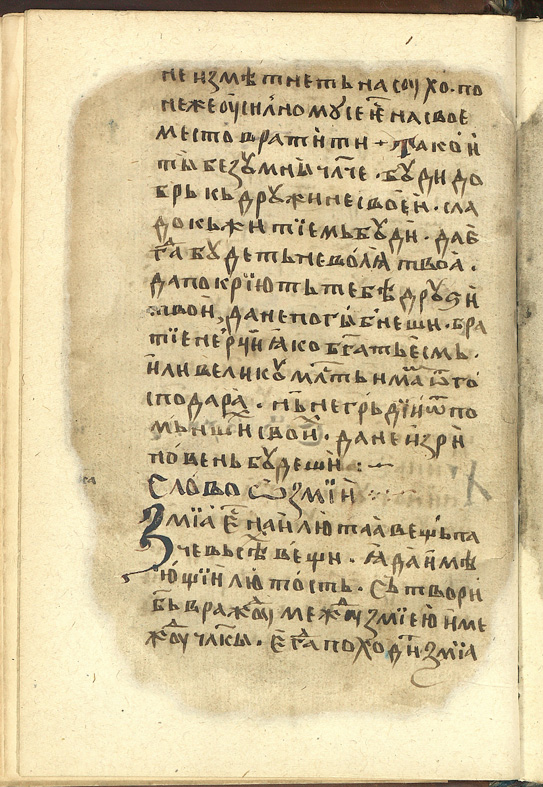 не измѣтнеть на соухо · по
нежеоусилномусе є҆ на свое
место вратитїи · Тако и
ты безꙋмны чл҃че · бꙋди до
брь кь дрꙋжине своеи · сла
докь житїемь бꙋди · даеⷣ
гⷣа бꙋдеть неволꙗ твоꙗ ·
да покрїють тебѣ дрꙋѕи
твои, да не погыбнеши · бра
тїе не рци ꙗко бг҃ать есмь ·
или великꙋ млⷭть имаⷨ ѿ го
сподара · нь не грьдїи ѡ по
мьнши свои · да не изри
новень бꙋдеши :~
Слово ѡ змїи
Змїа є҆ наилютаа вещь па
че вьсѣⷯ вещи · ꙗда имѣ
ющїи лютость · Сьтвори
бь вражⷣоу межⷣоу змїею и ме
жⷣоу чл҃кы · егⷣа походи змїа